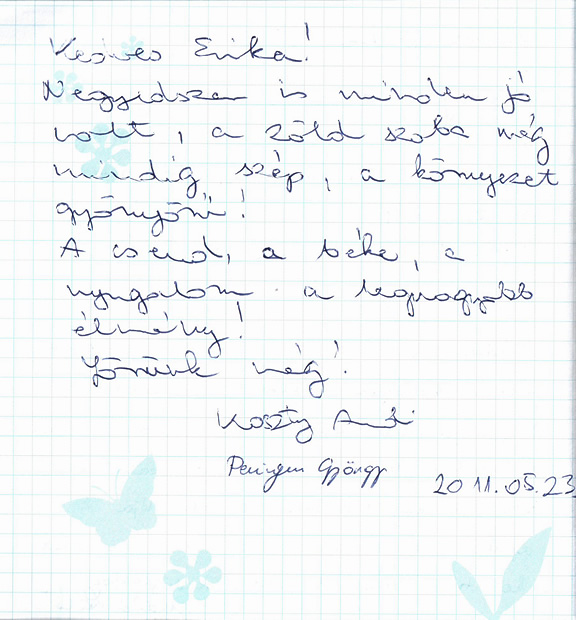 Kedves Erika!
Negyedszer is minden jó
volt, a zöld szoba még
mindig szép, a környezet
gyönyörű!
A csend, a béke, a
nyugalom a legnagyobb
élmény!
Jövünk még!
Koszty Andi
György 2011.05.23